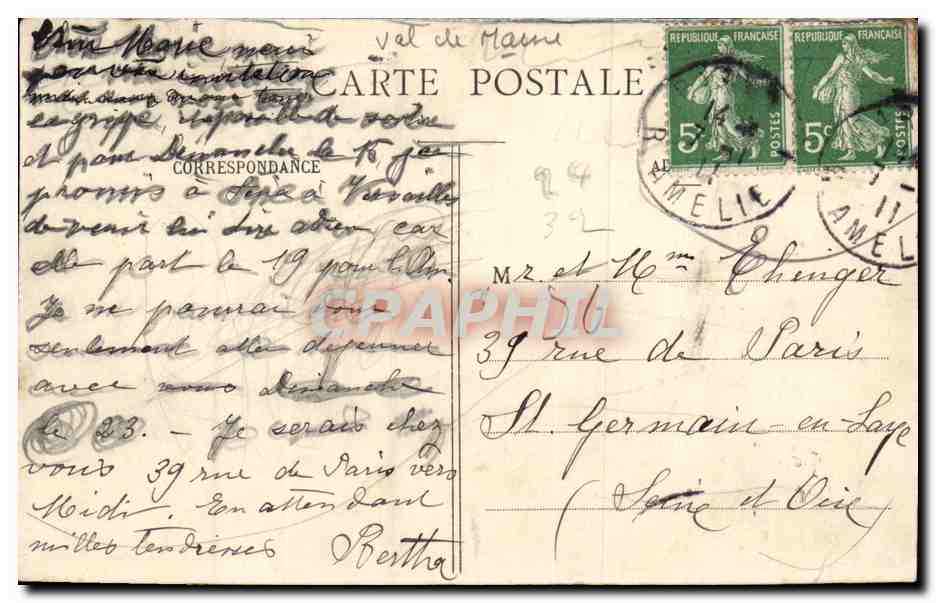 Val de Marne
CARTE POSTALE
Chère Marie merci
pour votre invitation
la grippe, impossible de sortir
et pour Dimanche le 16, j'ai
CORRESPONDANCE
promis à à Versailles
de venir lui dire adieu car
elle part le 19 pour
Je ne pourrai donc
seulement aller déjeuner
avec vous Dimanche
le 23. - Je serais chez
vous 39 rue de Paris vers
Midi. En attendant
milles tendresses
Bertha
REPUBLIQUE FRANÇAISE
5c
POSTES
REPUBLIQUE FRANÇAISE
5c
POSTES
R. AMELIE
11
AMEL
11
24
32
Mr. et Mme Ehinger
39 rue de Paris
St. Germain-en-Laye
(Seine et Oise)
CPAPHIL